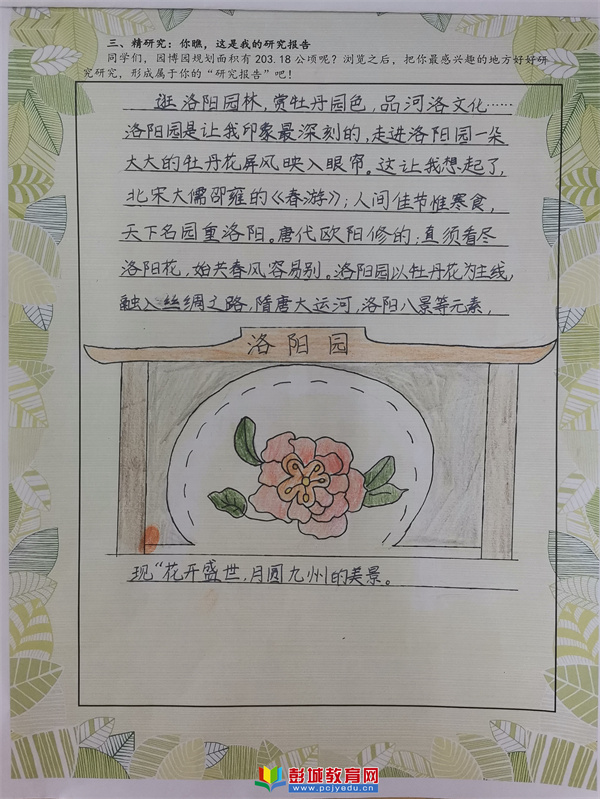 三、精研究：你瞧，这是我的研究报告
同学们，园博园规划面积有 203.18 公顷呢？浏览之后，把你最感兴趣的地方好好研
究研究，形成属于你的“研究报告”吧！
逛洛阳园林，赏牡丹园色，品河洛文化……
洛阳园是让我印象最深刻的，走进洛阳园一朵
大大的牡丹花屏风映入眼帘。这让我想起了，
北宋大儒邵雍的《春游》；人间佳节惟寒食，
天下名园重洛阳。唐代欧阳修的；直须看尽
洛阳花，始共春风容易别。洛阳园以牡丹花为主线，
融入丝绸之路，隋唐大运河，洛阳八景等元素，
洛阳园
现“花开盛世，月圆九州的美景。
彭城教育网
www.pcjyedu.cn